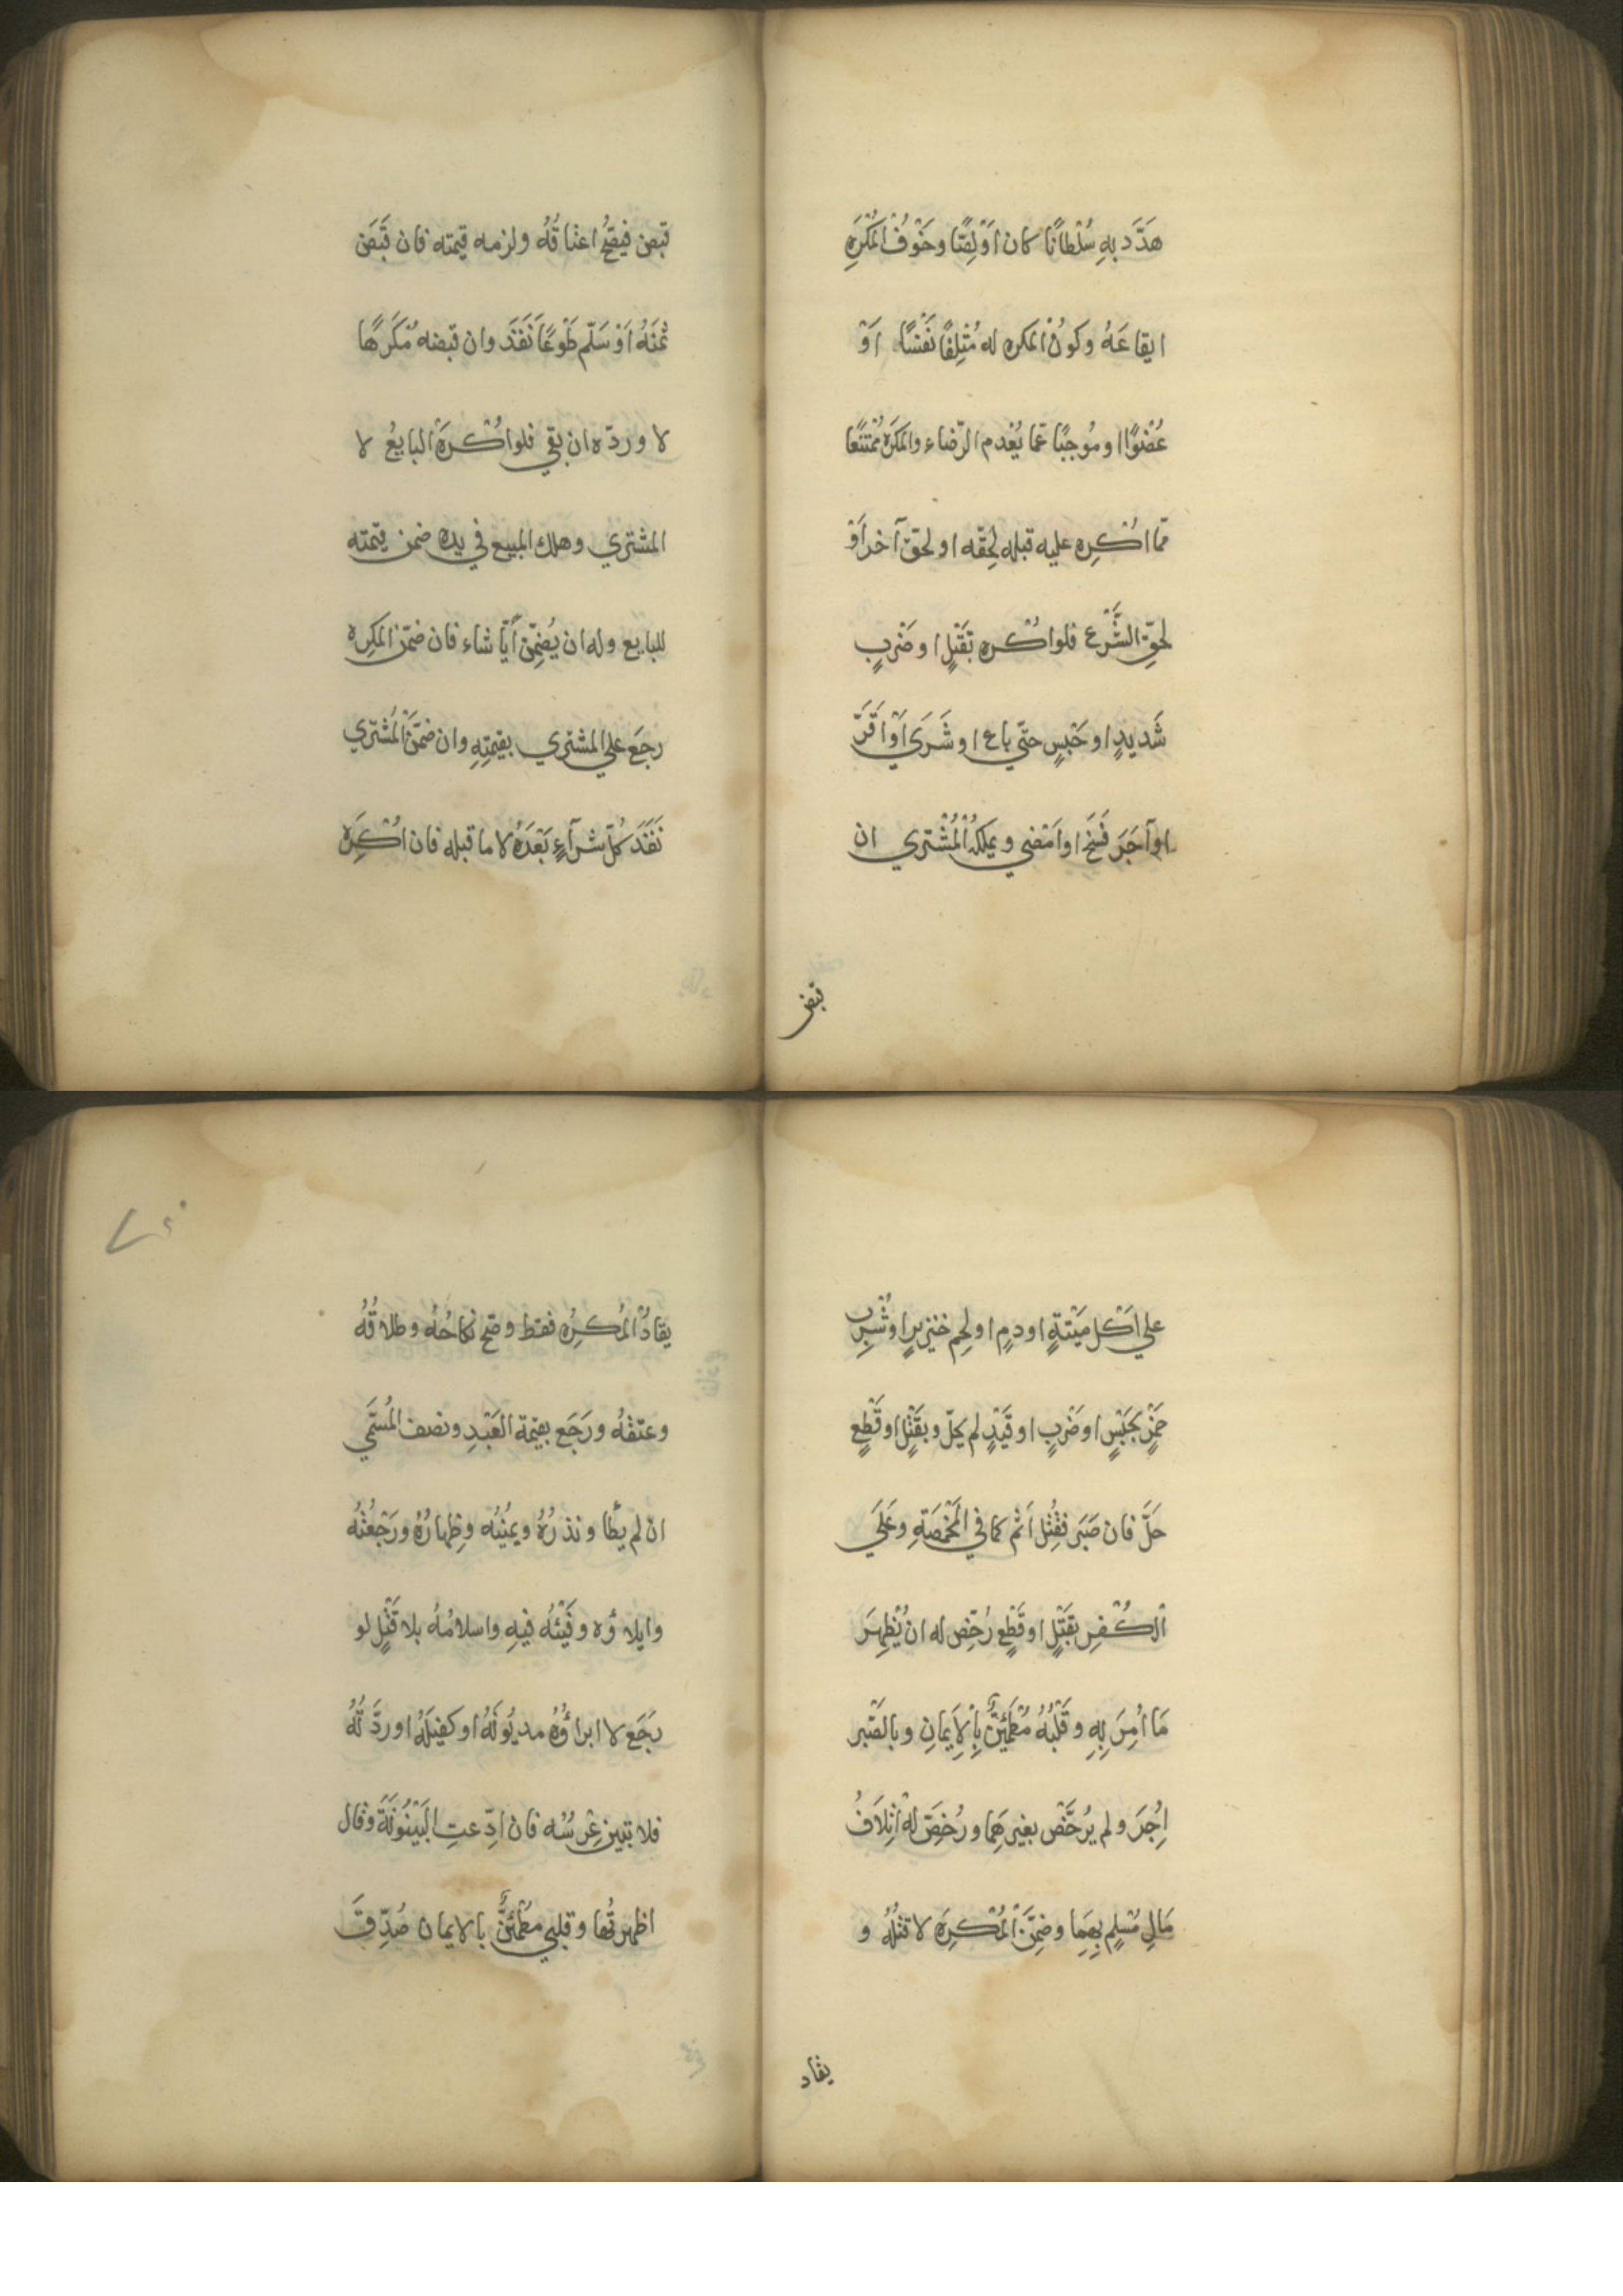 هَدَّد بهِ سُلْطانًا كان اَوْ لِصًّا وخَوْفُ المُكْرَهِ
ايقاعَهُ وكونُ المكره له مُتْلِفًا نَفْسًا اَوْ
عُضْوًا او مُوجبًا غما يُعْدم الرّضاء والمكرَه مُمْتَنعًا
ممّا اُكْرِه عليه قبله لحِقّه او لحقّ آخر اَوْ
لحقِّ الشَّرْع فلو اُكْره بقَتْلٍ او ضَرْبٍ
شَديدٍ او حَبْسٍ حتّي باع او شَرَي اَوْ اَقَرَّ
او آجَرَ فَسَخَ او اَمْضي ويملكُه الْمُشْتري ان
قبض
قبض فيصحُّ اعتاقُهُ ولزمه قيمته فان قَبَضَ
ثمَنَهُ اَوْ سَلّم طَوْعًا نَفَذَ وان قبضه مُكرَهًا
لا وردّه ان بقي فلو اُكْرِهَ البايعُ لا
المشتري وهلك المبيع في يده ضمن قيمته
للبايع وله ان يُضمِّن اَيًّا شاء فان ضمّن المكرِه
رجَع علي المشتري بقيمتِهِ وان ضمّنَ الْمُشْتري
نَفَذَ كُلّ شرآءٍ بَعْدَهُ لا ما قبله فان اُكْرِهَ
علي اَكْل مَيْتةٍ او دمٍ او لحِم خنزيرٍ او شُرْبِ
خَمْرٍ بحَبْسٍ او ضَرْبٍ او قَيْدٍ لم يحلّ وبقَتْلٍ او قَطْعٍ
حَلَّ فان صَبَر فقُتِل اَثم كما في المَخْمَصَةِ وعَلَي
الْكُفرِ بقَتْلٍ او قَطْعٍ رُخِّص له ان يُظْهِرَ
مَا اُمِرَ بِهِ وقَلْبُهُ مُطْمَئِنٌّ بِالْاِيَمانِ وبالصّبر
اُجِرَ ولم يُرخَّصْ بغيرهِما ورُخِّصَ لهُ اِتلاَفُ
مَالِ مُسْلِمٍ بِهِمَا وضمِّنَ الْمُكْرِهَ لا قتْلُهُ و
يقاد
يقادُ الْمُكرِهُ فقط وصَحّ نكاحُهُ وطلاقُهُ
وعتقُهُ ورَجَع بقيمة العَبْدِ ونصف المُسَمّي
ان لم يطأ ونذرُهُ ويمينُه وظِهارُهُ ورَجْعتُهُ
وايلاؤه وفَيْئُه فيهِ واسلامُهُ بلا قَتْلٍ لو
رجَع لا ابراؤُهُ مديُونَهُ او كفيلَهُ او ردَّتُهُ
فلا تبين عِرْسُه فان ادِّعتِ البَيْنُونَةَ وقال
اظهرتُها وقلبي مطمْئنٌّ بالايمان صُدِّقَ